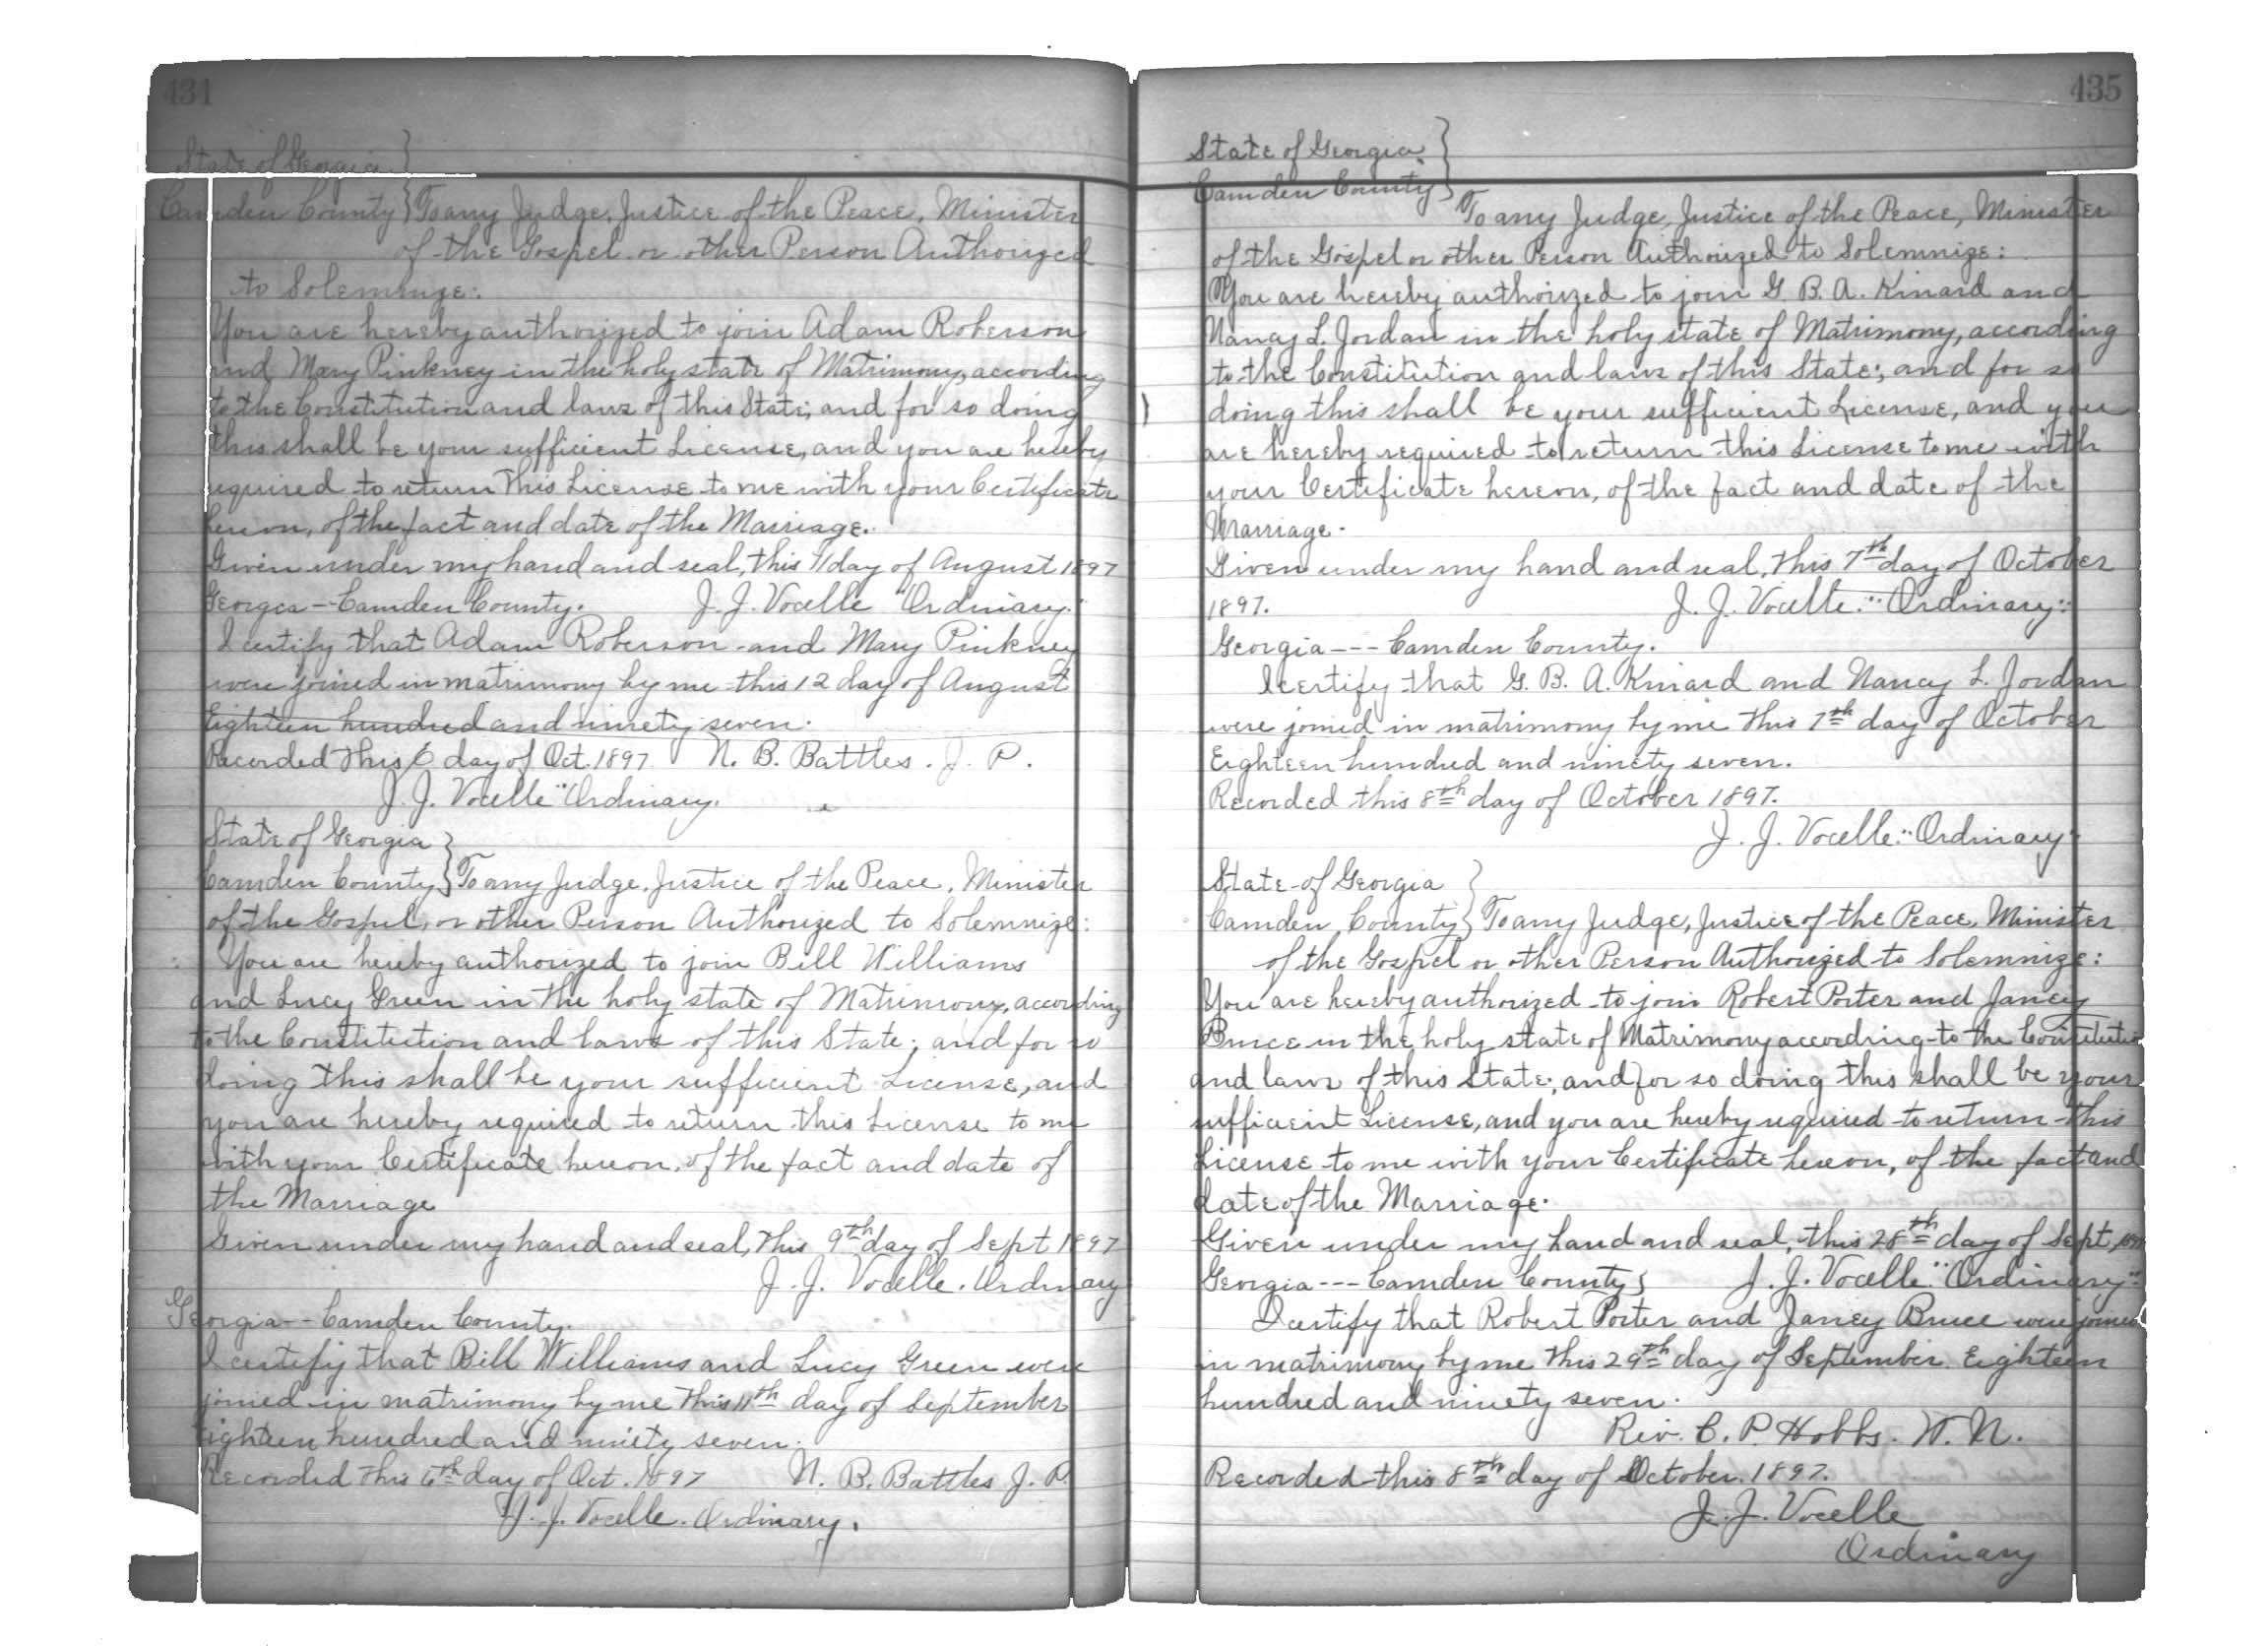 431
State of Georgia
Camden County } To any Judge, Justice of the Peace, Minister
of the Gospel or other Person Authorized
to Solemnize:
You are hereby authorized to join Adam Roberson
and Mary Pinkney in the holy state of Matrimony, according
to the Constitution and laws of this State; and for so doing
this shall be your sufficient License, and you are hereby
required to return this License to me with your Certificate
hereon, of the fact and date of the Marriage.
Given under my hand and seal, this 11 day of August 1897
Georgia -- Camden County. J. J. Vocelle "Ordinary."
I certify that Adam Roberson and Mary Pinkney
were joined in matrimony by me this 12 day of August
Eighteen hundred and ninety seven.
Recorded this 6 day of Oct. 1897 N. B. Battles. J. P.
J. J. Vocelle "Ordinary.
State of Georgia
Camden County } To any Judge, Justice of the Peace, Minister
of the Gospel, or other Person Authorized to Solemnize:
You are hereby authorized to join Bill Williams
and Lucy Green in the holy state of Matrimony, according
to the Constitution and laws of this State; and for so
doing this shall be your sufficient License, and
you are hereby required to return this License to me
with your Certificate hereon, of the fact and date of
the Marriage
Given under my hand and seal, this 9th day of Sept 1897
J. J. Vocelle. Ordinary
Georgia -- Camden County.
I certify that Bill Williams and Lucy Green were
joined in matrimony by me this 11th day of September
Eighteen hundred and ninety seven.
Recorded this 6th day of Oct. 1897 N. B. Battles J. P.
J. J. Vocelle. Ordinary.
435
State of Georgia }
Camden County }
To any Judge, Justice of the Peace, Minister
of the Gospel or other Person Authorized to Solemnize:
You are hereby authorized to join G. B. A. Kinard and
Nancy L. Jordan in the holy state of Matrimony, according
to the Constitution and laws of this State; and for so
doing this shall be your sufficient License, and you
are hereby required to return this License to me with
your Certificate hereon, of the fact and date of the
Marriage.
Given under my hand and seal, this 7th day of October
1897. J. J. Vocelle. "Ordinary"
Georgia --- Camden County.
I certify that G. B. A. Kinard and Nancy L. Jordan
were joined in matrimony by me this 7th day of October
Eighteen hundred and ninety seven.
Recorded this 8th day of October 1897.
J. J. Vocelle. "Ordinary"
State of Georgia
Camden County } To any Judge, Justice of the Peace, Minister
of the Gospel or other Person Authorized to Solemnize:
You are hereby authorized to join Robert Porter and Janey
Bruce in the holy state of Matrimony according to the Constitution
and laws of this State; and for so doing this shall be your
sufficient License, and you are hereby required to return this
License to me with your Certificate hereon, of the fact and
date of the Marriage.
Given under my hand and seal, this 28th day of Sept, 1897
Georgia --- Camden County } J. J. Vocelle. "Ordinary"
I certify that Robert Porter and Janey Bruce were joined
in matrimony by me this 29th day of September. Eighteen
hundred and ninety seven.
Rev. C. P. Hobbs. W. N.
Recorded this 8th day of October. 1897.
J. J. Vocelle
Ordinary